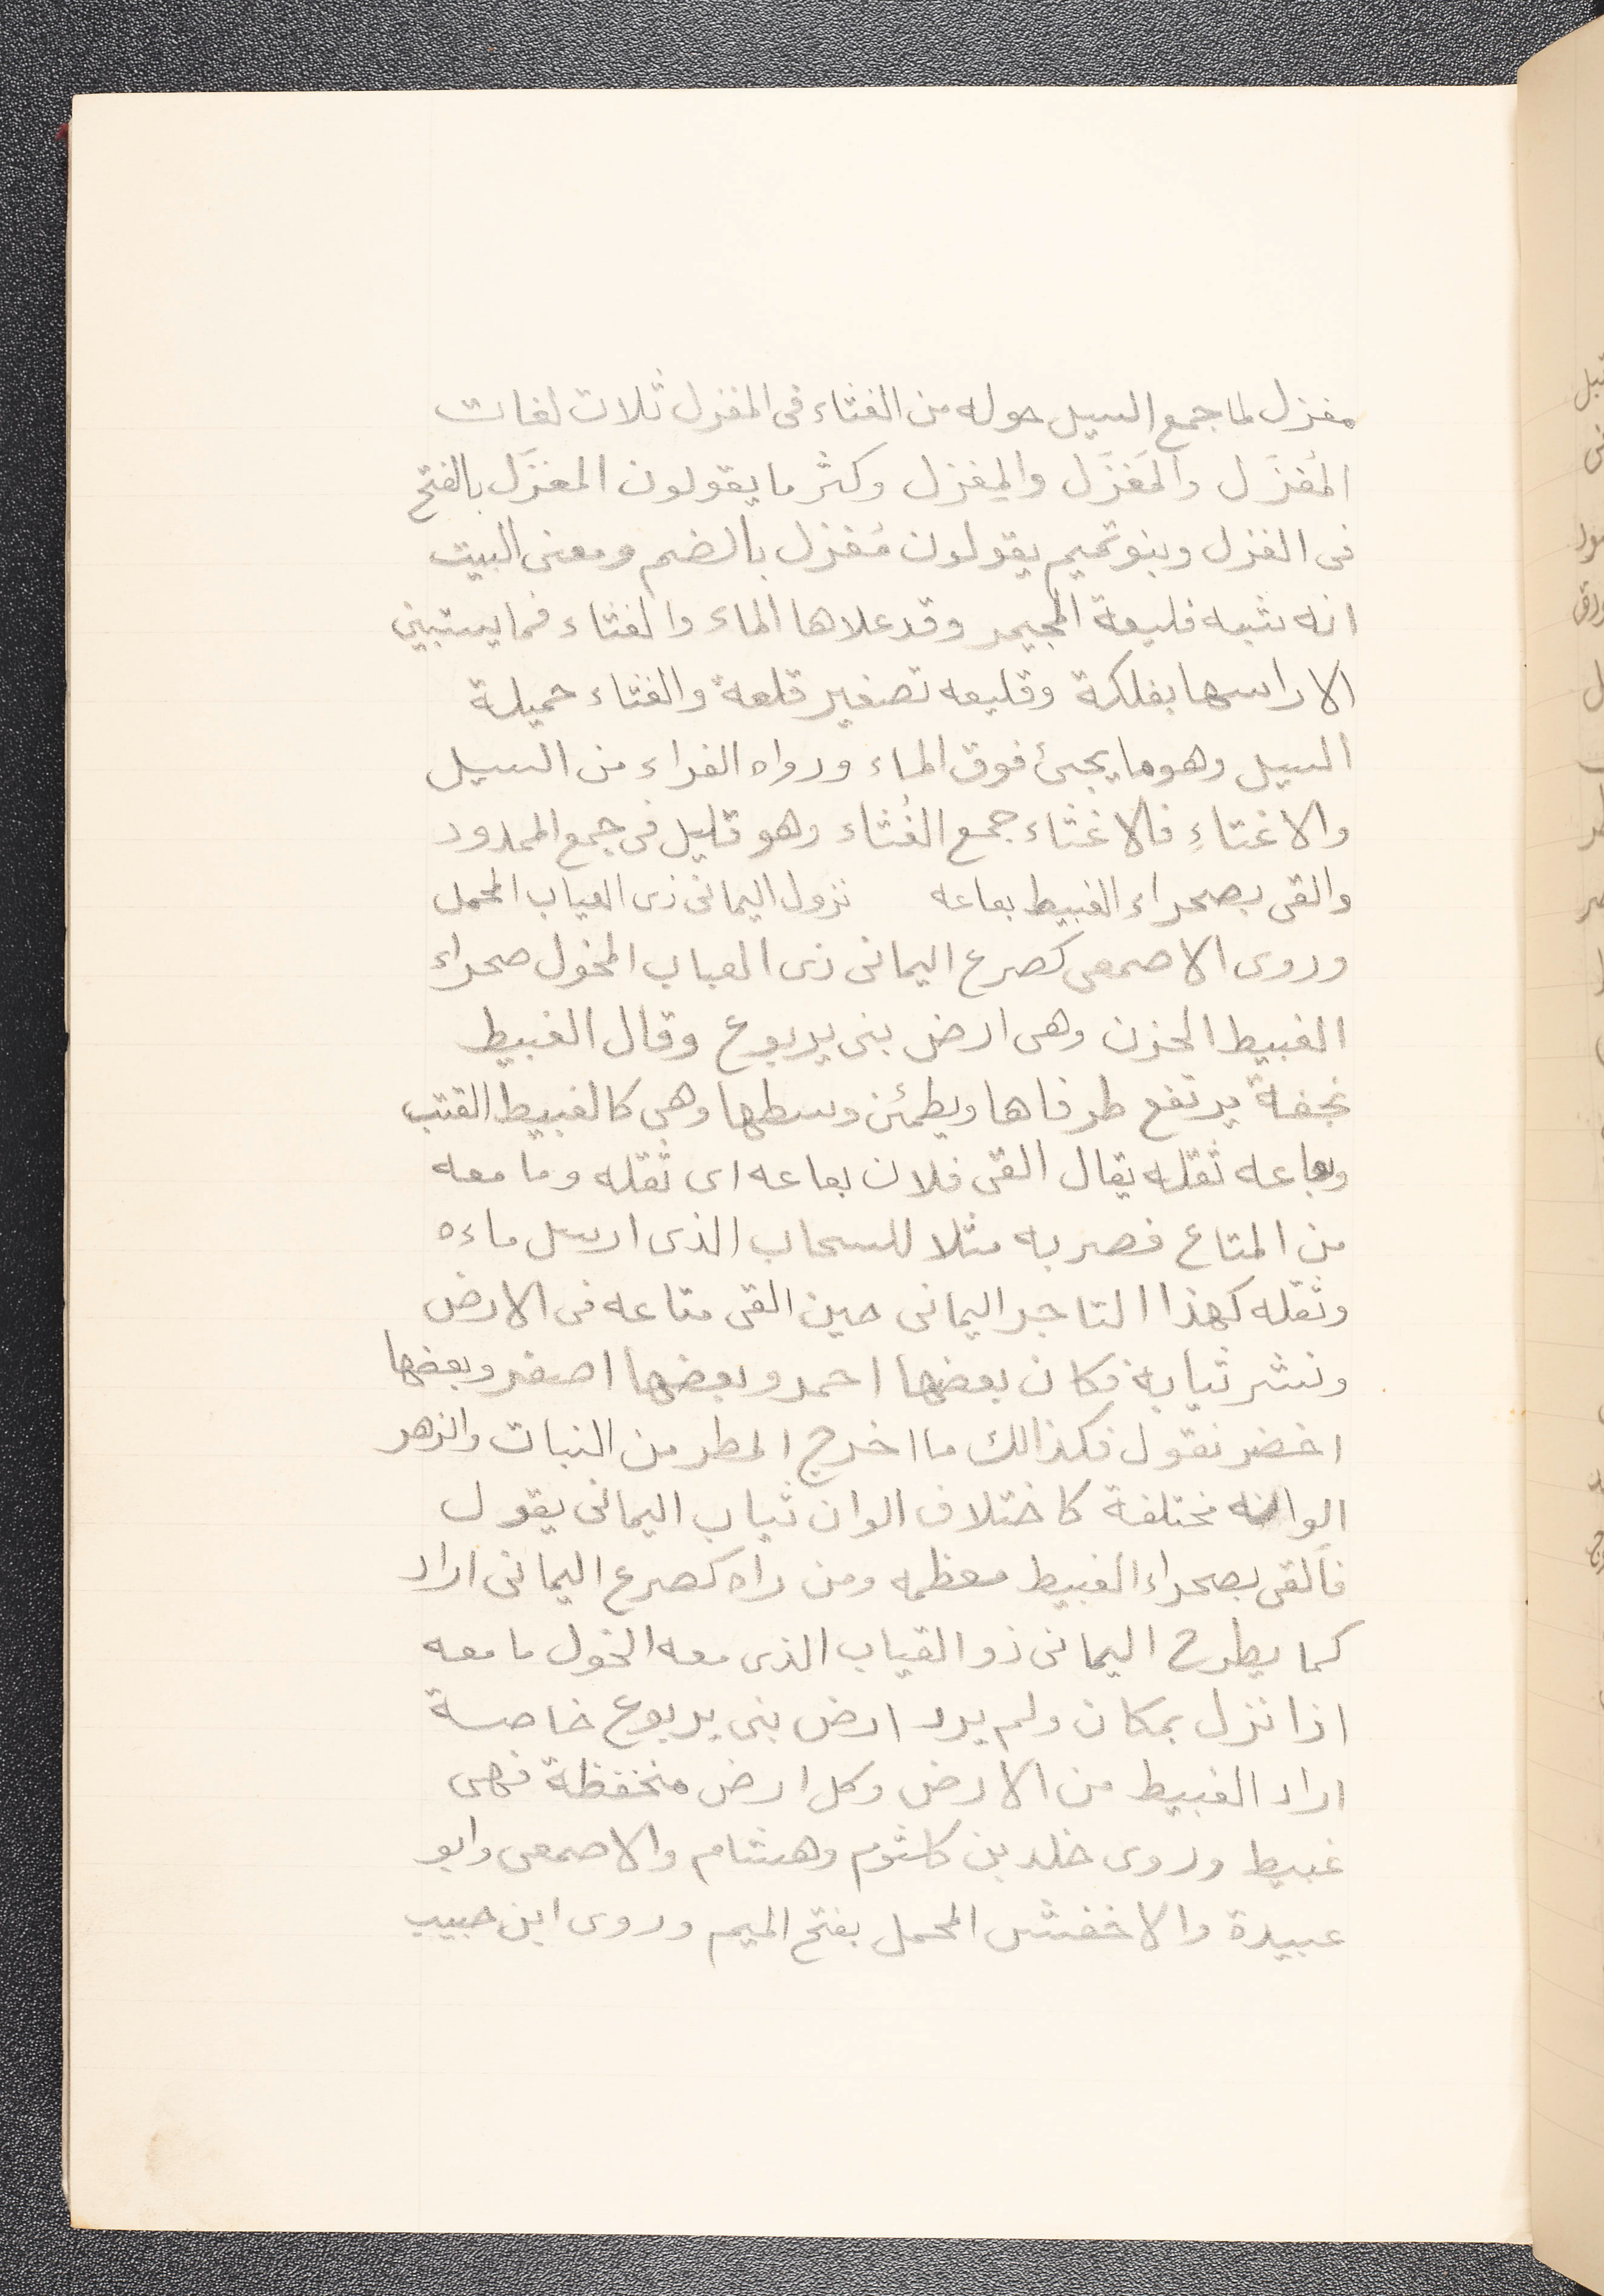 مغزل لما جمع السيل حوله من الغثاء فى المغزل ثلات لغات
المُغزَل والمَغزَل والمِغزل وكثر ما يقولون المغزَل بالفتح
فى الغزل وبنو تميم يقولون مُغزل بالضم ومعنى البيت
انه شبه قليعة المجيمر وقد علاها الماء والغثاء فما يستبين
الا راسها بفلكة وقليعه تصغير قلعة والغثاء حميلة
السيل وهو ما يجىئ فوق الماء ورواه الفراء من السيل
والاغثاءِ فالاغثاء جمع الغُثاء وهو قليل فى جمع الممدود
والقى بصحراء الغبيط بعاعه نزول اليمانى ذى العياب المحمل
وروى الاصمعى كصرع اليمانى ذى العياب المخول صحراء
الغبيط الحزن وهى ارض بنى يربوع وقال الغبيط
نجفة يرتفع طرفاها ويطمئن وسطها وهى كالغبيط القتب
وبعاعه ثقله يقال القى فلان بعاعه اى ثقله وما معه
من المتاع فصر به مثلا للسحاب الذى ارسل ماءه
وثقله كهذا التاجر اليمانى حين القى متاعه فى الارض
ونشر ثيابه فكان بعضها احمر وبعضها اصفر وبعضها
اخضر نقول فكذالك ما اخرج المطر من النبات والزهر
الوانه مختلفة كاختلاف الوان ثياب اليمانى يقول
فالقى بصحراء الغبيط معظمه ومن راه كصرع اليمانى اراد
كما يطرح اليمانى ذو القياب الذى معه الخول ما معه
اذا نزل بمكان ولم يرد ارض بنى يربوع خاصة
اراد الغبيط من الارض وكل ارض منخفظة فهى
غبيط وروى خلد بن كلثوم وهشام والاصمعى وابو
عبيدة والاخفش المحمل بفتح الميم وروى ابن حبيب